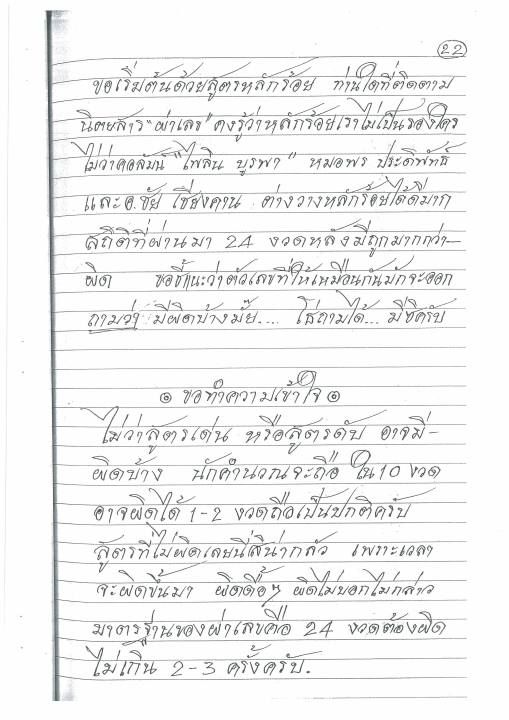 22
ขอเริ่มต้นด้วยสูตรหลักร้อย ท่านใดที่ติดตาม
นิตยสาร "ผ่าเลข" คงรู้ว่าหลักร้อยเราไม่เป็นรองใคร
ไม่ว่าคอลัมน์ "ไพลิน บูรพา" หมอพร ประดิพัทธ์
และ อ.ชัย เชียงคาน ต่างวางหลักร้อยได้ดีมาก
สถิติที่ผ่านมา 24 งวดหลังมีถูกมากกว่า
ผิด ขอชี้แนะว่าตัวเลขที่ให้เหมือนกันมักจะออก
ถามว่า มีผิดบ้างมั๊ย.... โธ่ถามได้... มีซิครับ
๏ ขอทำความเข้าใจ ๏
ไม่ว่าสูตรเด่น หรือสูตรดับ อาจมี-
ผิดบ้าง นักคำนวณจะถือ ใน 10 งวด
อาจผิดได้ 1-2 งวดถือเป็นปกติครับ
สูตรที่ไม่ผิดเลยนี่สิน่ากลัว เพราะเวลา
จะผิดขึ้นมา ผิดดื้อๆ ผิดไม่บอกไม่กล่าว
มาตรฐานของผ่าเลขคือ 24 งวดต้องผิด
ไม่เกิน 2-3 ครั้งครับ.